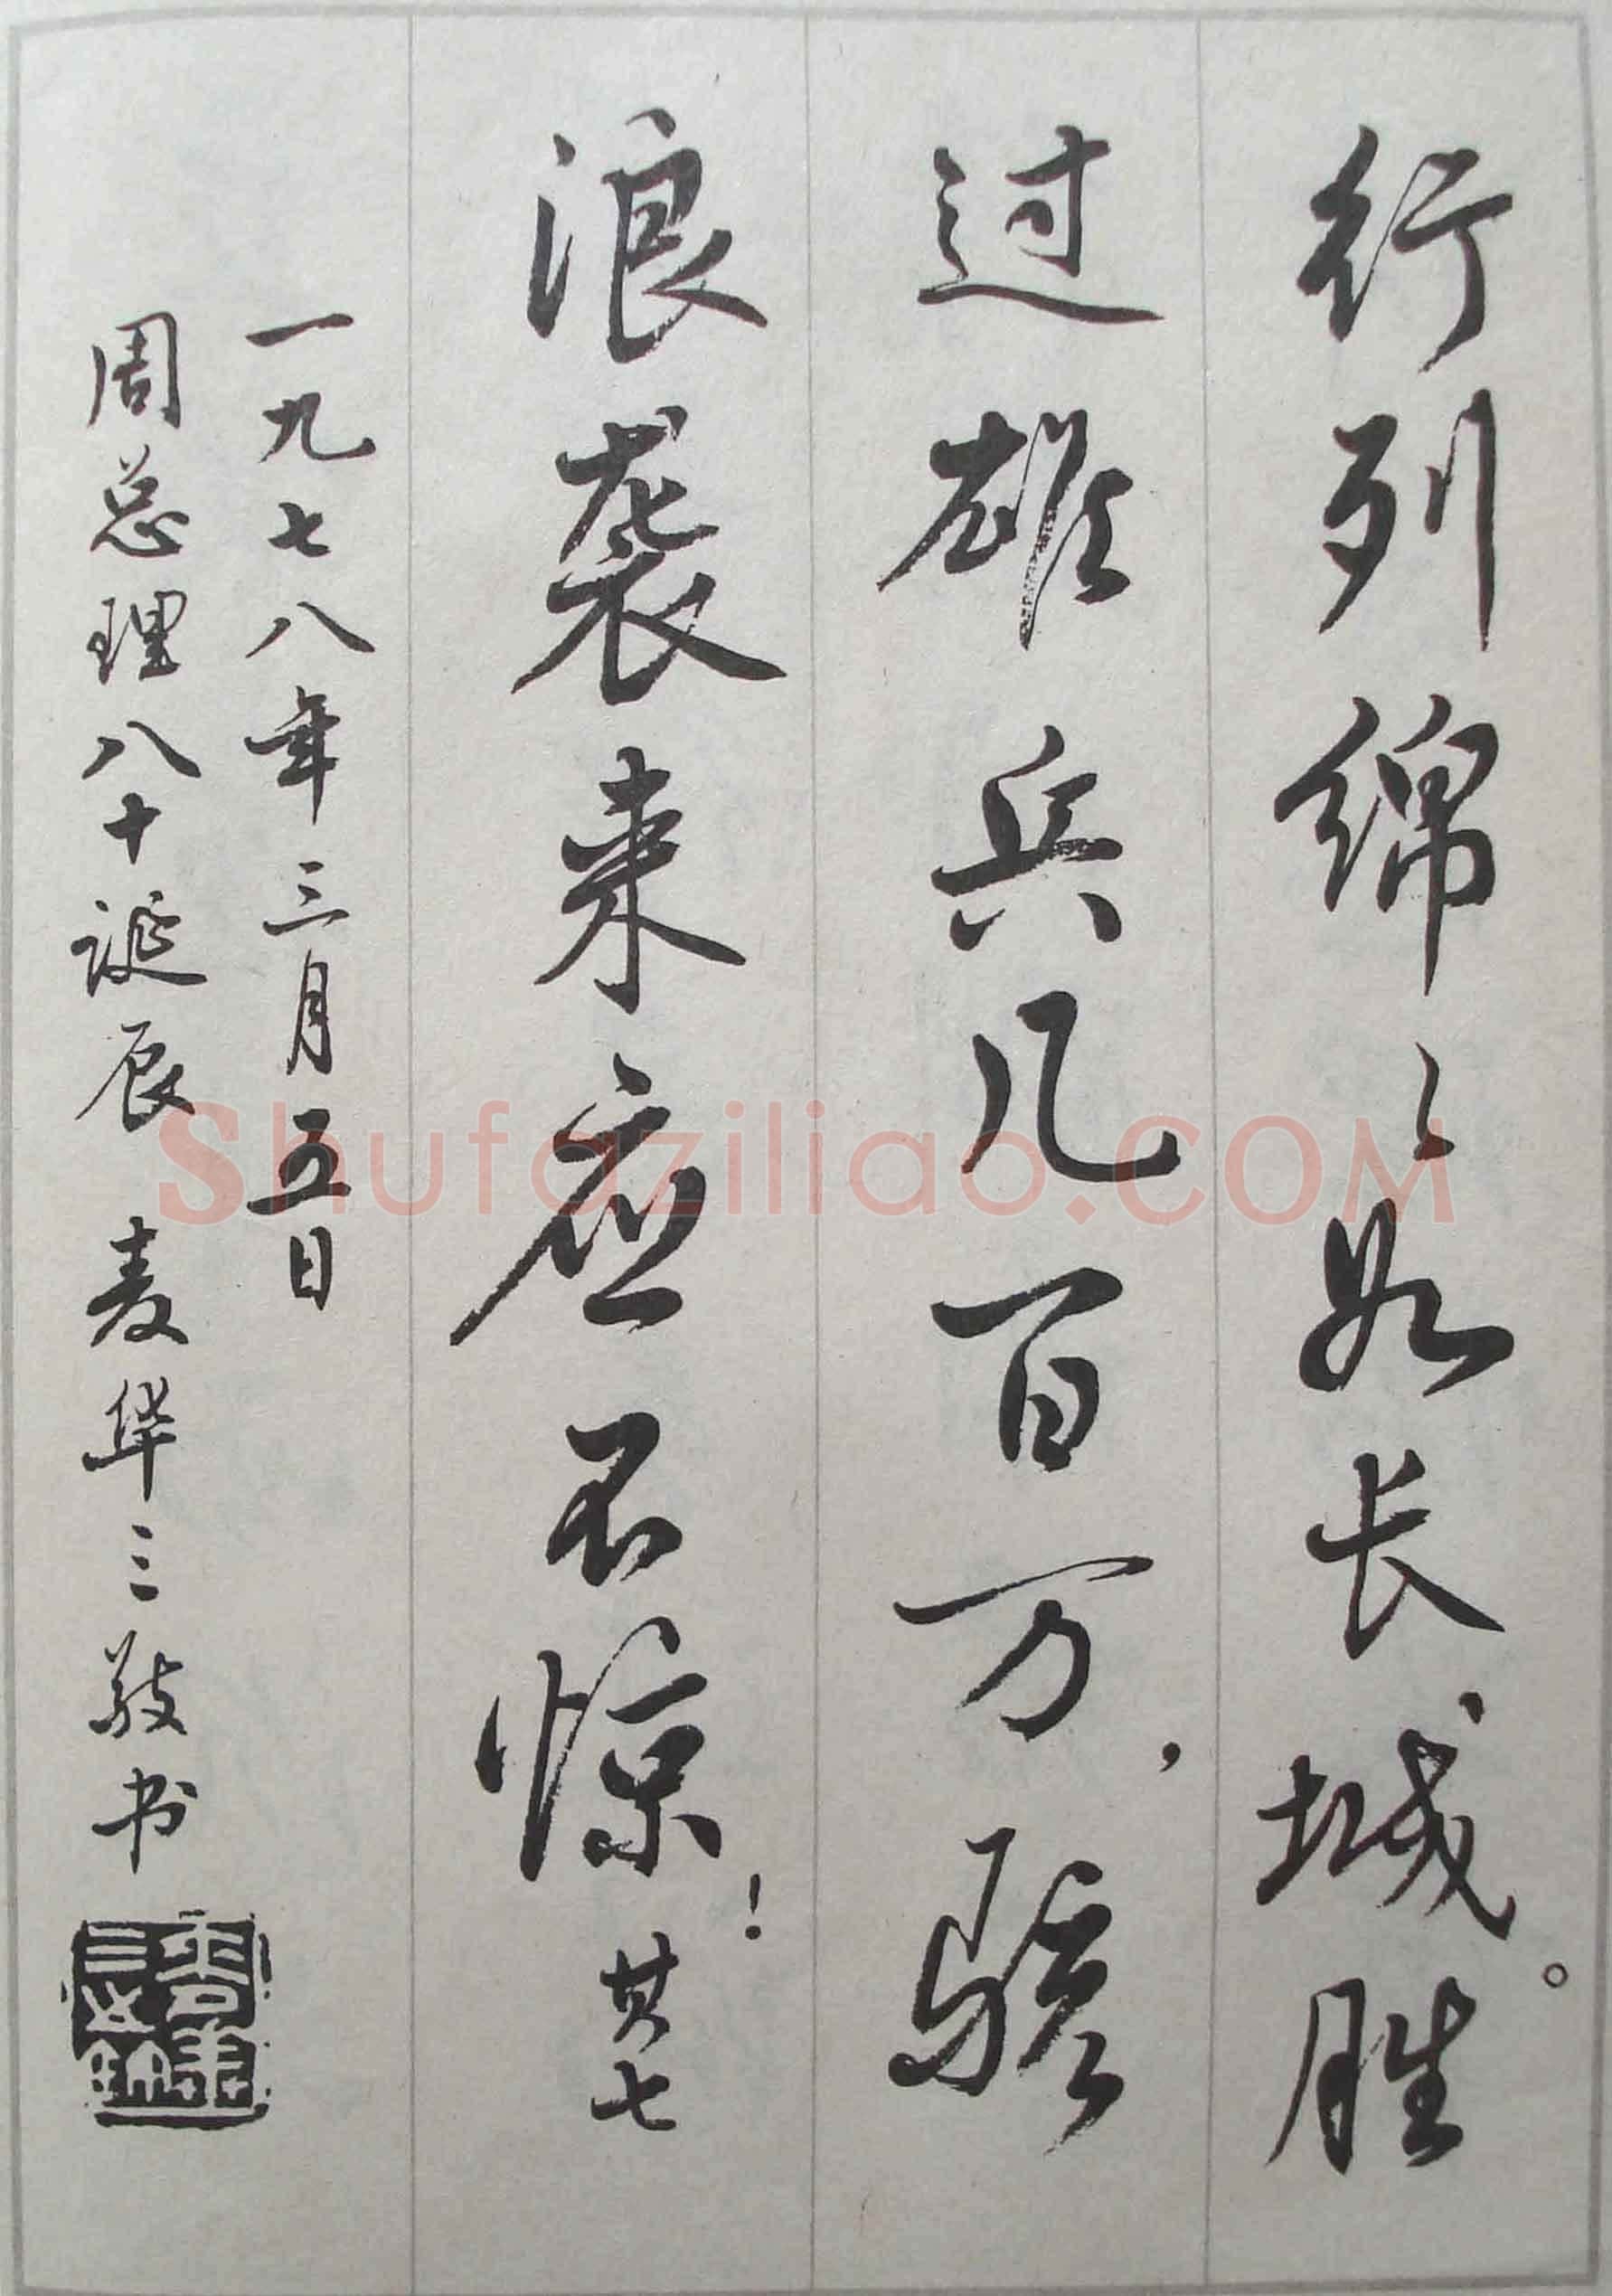 行列绵々如长城。胜
过雄兵几百万，骇
浪袭来应不惊！其七
一九七八年三月五日
周总理八十诞辰 麦华三敬书
Shufaziliao.COM